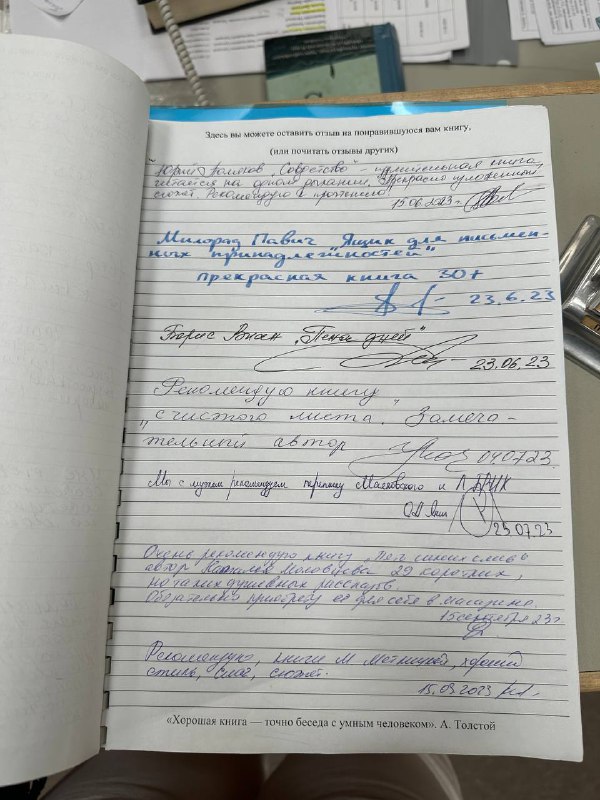 Здесь вы можете оставить отзыв на понравившуюся вам книгу,
(или почитать отзывы других)
Юрий Поляков „Совдетство" – книга
читается на одном дыхании. Прекрасно изложенный
сюжет. Рекомендую к прочтению!
15.06.2023г.
Милорад Павич "Ящик для письмен-
ных принадлежностей"
прекрасная книга 30+
23.6.23
Борис Виан „Пена дней"
23.06.23
Рекомендую книгу
"с чистого листа." Замеча-
тельный автор
040723
Мы с мужем рекомендуем переписку Маяковского и Л БРИК
23.07.23
Очень рекомендую книгу
автор Наталия 29 коротких,
но таких душевных рассказов.
Обязательно приобрету её для себя в магазине.
15 сентября 23г.
Рекомендую, книги М. Метлицкой, хороший
стиль, слог, сюжет.
15.09.2023
«Хорошая книга — точно беседа с умным человеком». А. Толстой